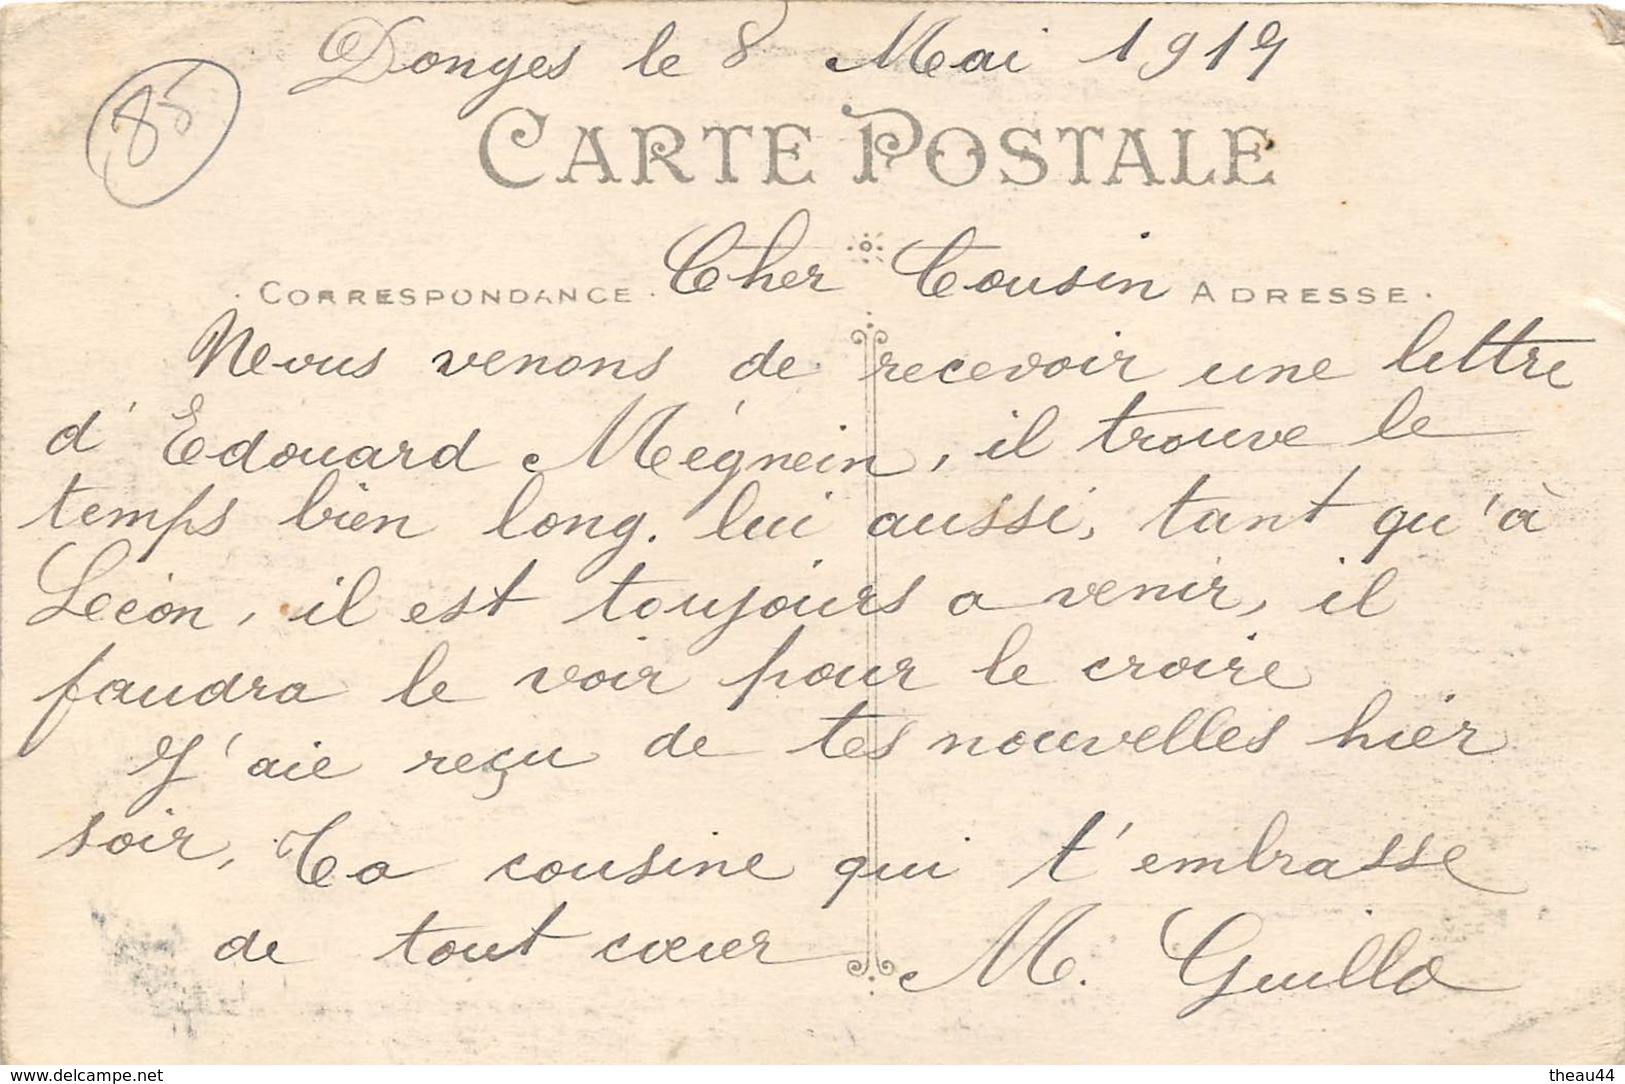 Donges le 8 Mai 1919
85
CARTE POSTALE
CORRESPONDANCE
ADRESSE
Cher Cousin
Nous venons de recevoir une lettre
d'Edouard Mégnein, il trouve le
temps bien long. lui aussi, tant qu'à
Léon, il est toujours a venir, il
faudra le voir pour le croire
J'aie reçu de tes nouvelles hier
soir, Ta cousine qui t'embrasse
de tout cœur M. Guillo
www.delcampe.net
theau44